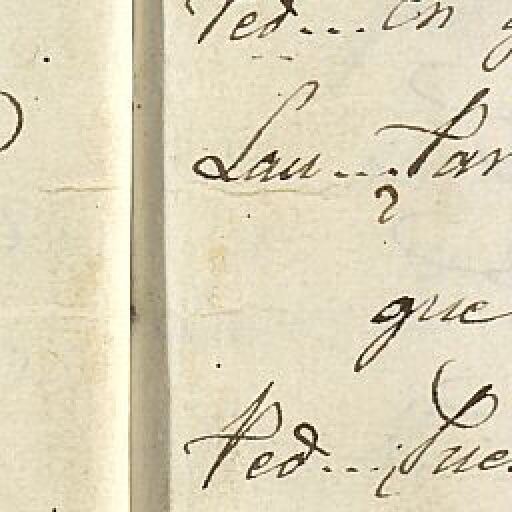 Ped... En
Lau... Par
que
Ped... Pue